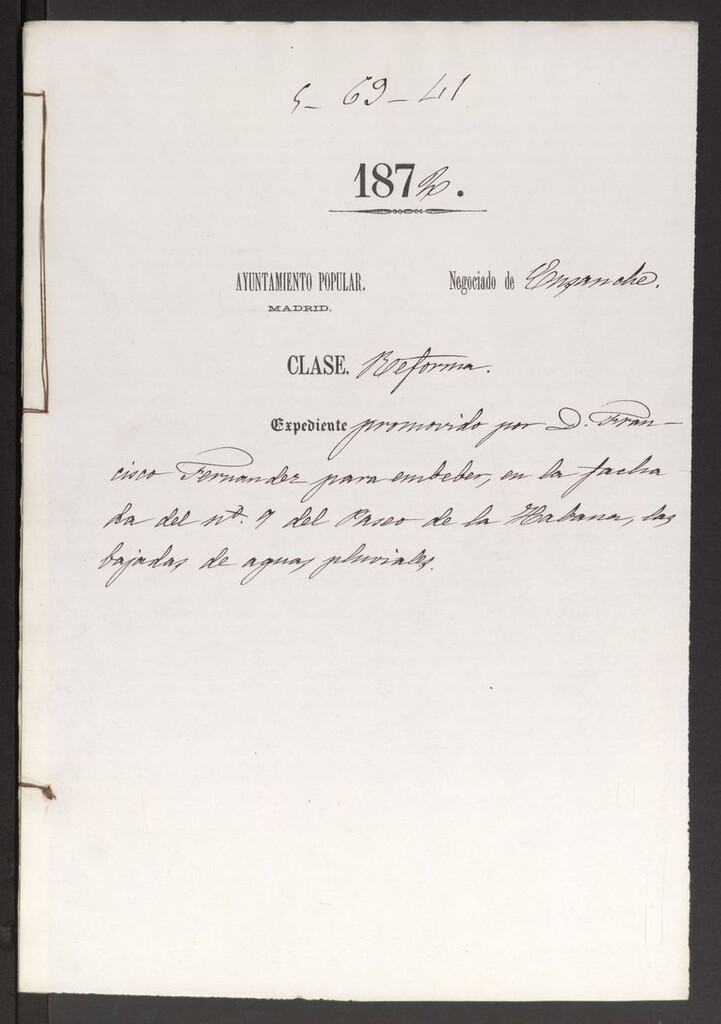 5-69-41
1872.
AYUNTAMIENTO POPULAR. Negociado de Ensanche.
MADRID.
CLASE. Reforma.
Expediente promovido por D. Fran-
cisco Fernandez para embeber, en la facha-
da del nº. 9 del Paseo de la Habana, las
bajadas de aguas pluviales.